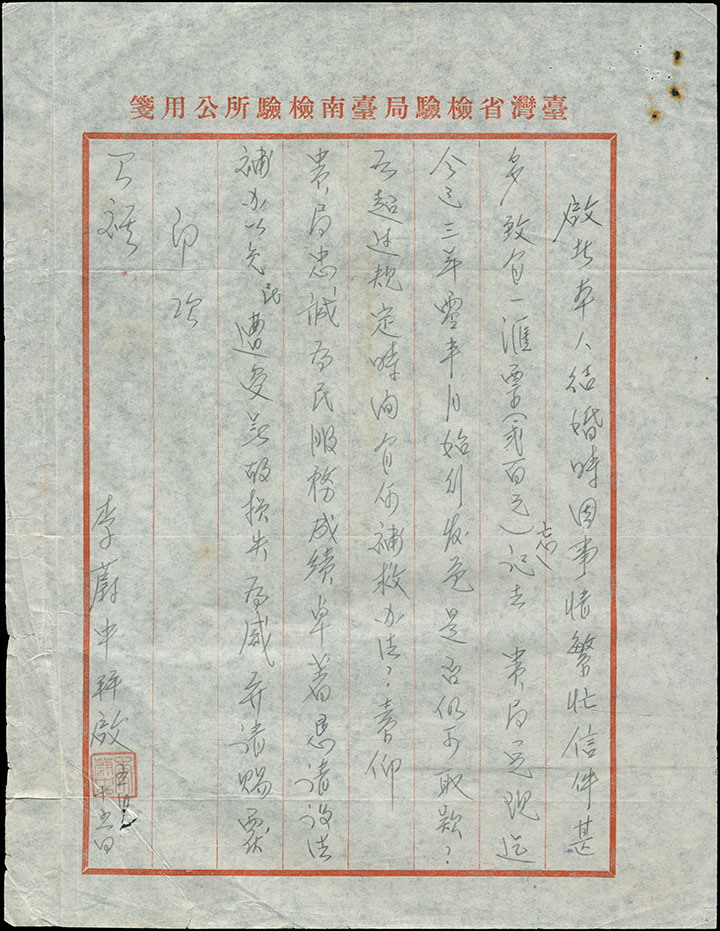 臺灣省檢驗局臺南檢驗所公用箋
啟者本人結婚時因事情繁忙信件甚
多致有一滙票(貳百元)忘記去 貴局兌現迄
今已三年零半月始行發覺是否仍可取款？
若超过規定時间有何補救办法？素仰
貴局忠誠為民服務成績卓著恳請設法
補办以免民遭受無故損失為感并請賜覆
即頌
公祺
李蔚中拜啟
十五日